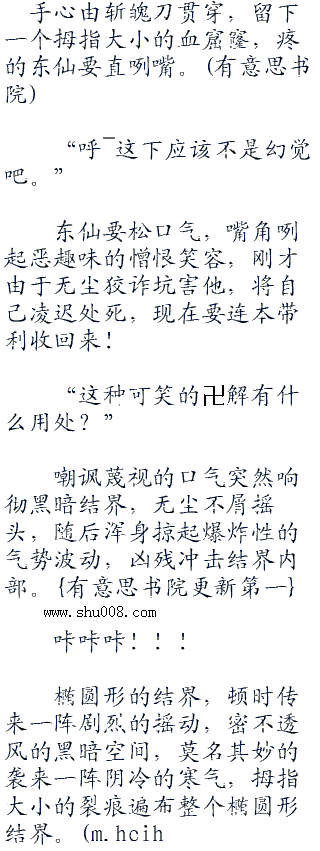 手心由斩魄刀贯穿，留下
一个拇指大小的血窟窿，疼
的东仙要直咧嘴。(有意思书
院)
“呼¯这下应该不是幻觉
吧。”
东仙要松口气，嘴角咧
起恶趣味的憎恨笑容，刚才
由于无尘狡诈坑害他，将自
己凌迟处死，现在要连本带
利收回来！
“这种可笑的卍解有什
么用处？”
嘲讽蔑视的口气突然响
彻黑暗结界，无尘不屑摇
头，随后浑身掠起爆炸性的
气势波动，凶残冲击结界内
部。{有意思书院更新第一}
www.shu008.com
咔咔咔！！！
椭圆形的结界，顿时传
来一阵剧烈的摇动，密不透
风的黑暗空间，莫名其妙的
袭来一阵阴冷的寒气，拇指
大小的裂痕遍布整个椭圆形
结界。(m.hcih